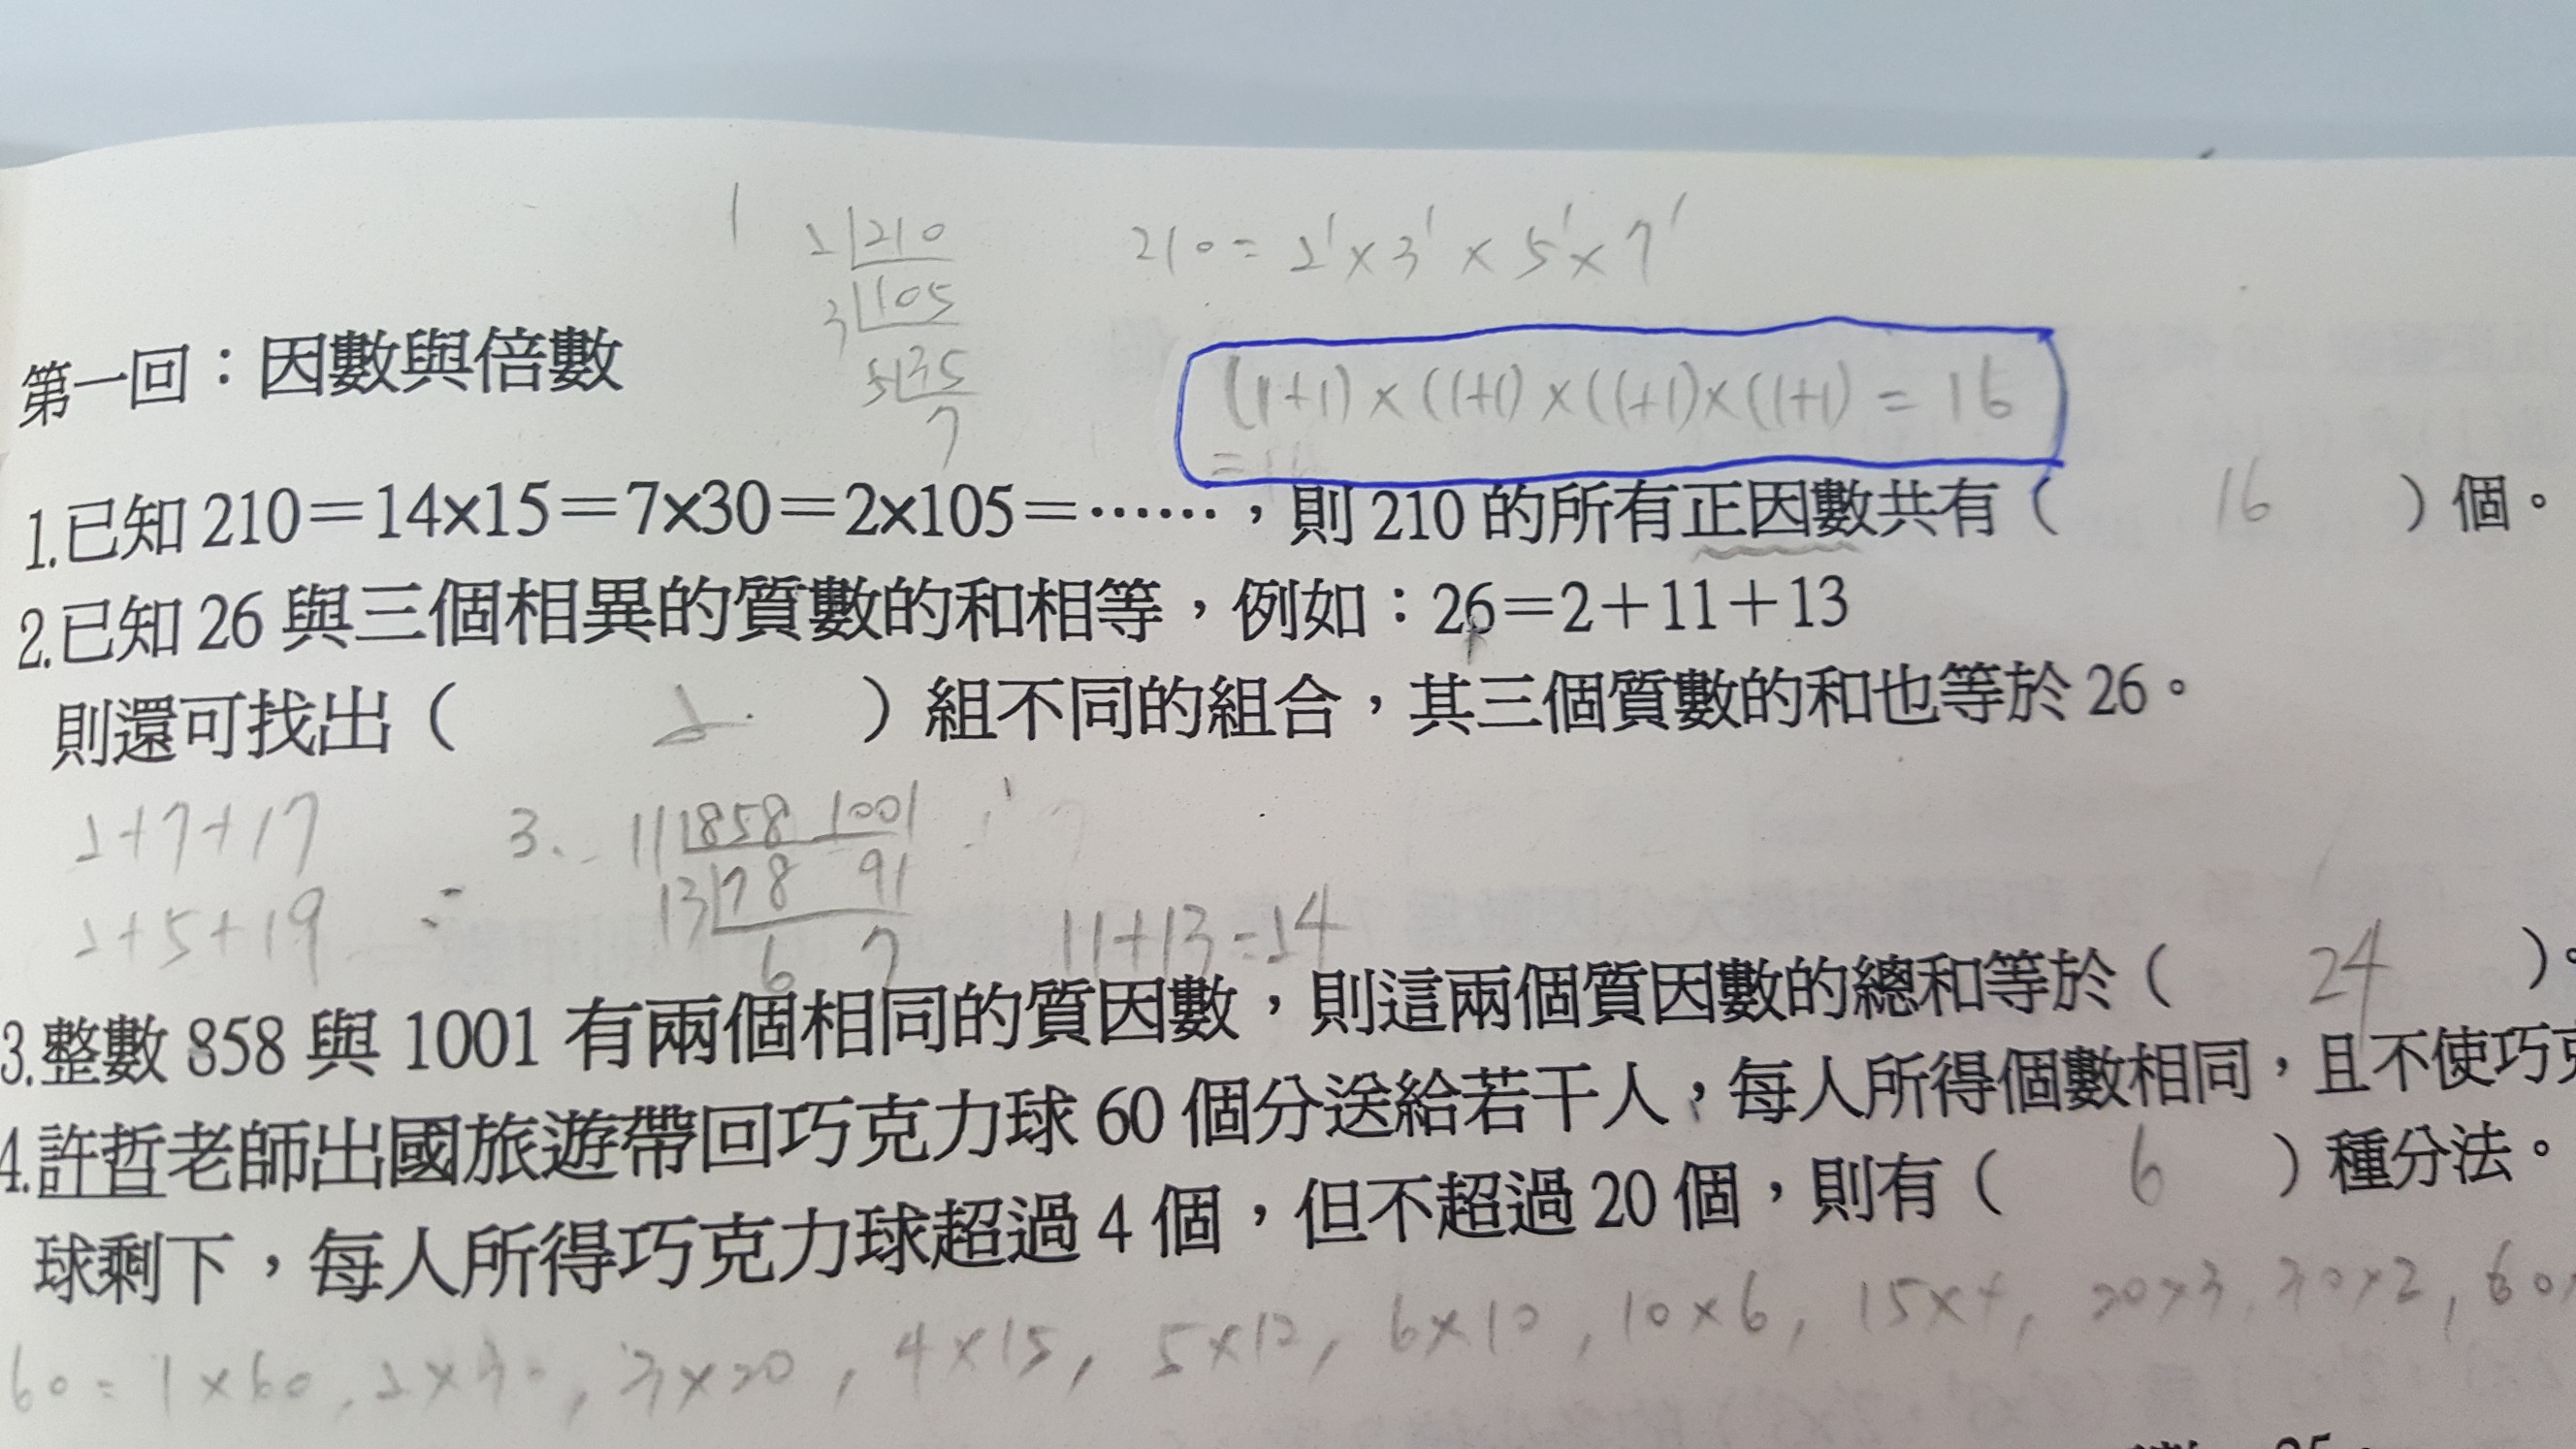 1
2 210
210=2¹×3¹×5¹×7¹
3 105
5 35
7
(1+1)×(1+1)×(1+1)×(1+1)=16
第一回：因數與倍數
1.已知210＝14×15＝7×30＝2×105＝……，則210的所有正因數共有（ 16 ）個。
2.已知26與三個相異的質數的和相等，例如：26＝2＋11＋13
則還可找出（ 2 ）組不同的組合，其三個質數的和也等於26。
2+7+17
2+5+19
3. 11 858 1001
13 78 91
6 7
11+13=24
3.整數858與1001有兩個相同的質因數，則這兩個質因數的總和等於（ 24 ）。
4.許哲老師出國旅遊帶回巧克力球60個分送給若干人，每人所得個數相同，且不使巧克
球剩下，每人所得巧克力球超過4個，但不超過20個，則有（ 6 ）種分法。
60=1×60,2×30,3×20,4×15,5×12,6×10,10×6,15×4,20×3,30×2,60×